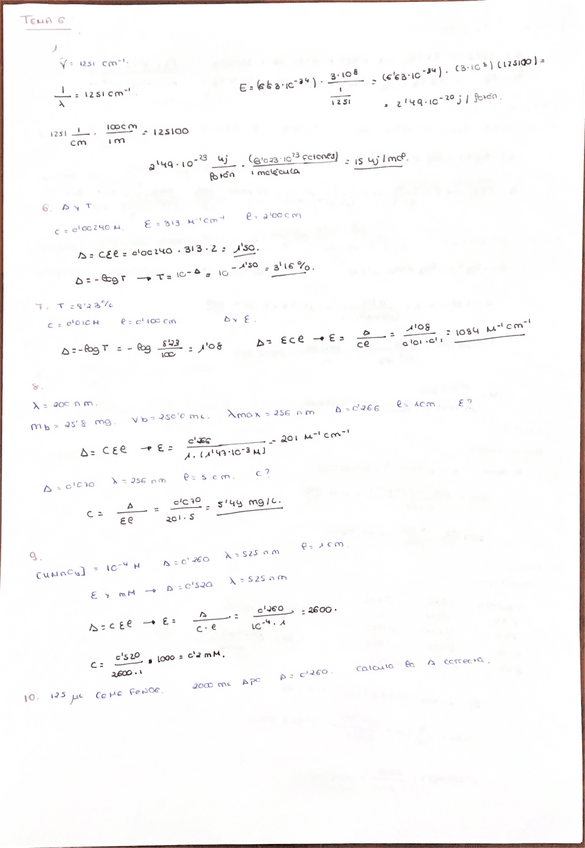 TEMA 6
1
ṽ = 1251 cm⁻¹.
1/λ = 1251 cm⁻¹
E = (6'63·10⁻³⁴) · 3·10⁸ / (1/1251) = (6'63·10⁻³⁴) · (3·10⁸) (125100) =
= 2'49·10⁻²⁰ j / fotón.
1251 1/cm · 100cm/1m = 125100
2'49·10⁻²³ kj/fotón · (6'023·10²³ fotones)/1 molécula = 15 kj/mol.
6. A y T
c = 0'00240 M. ε = 313 M⁻¹cm⁻¹ l = 2'00cm
A = cεl = 0'00240 · 313 · 2 = 1'50.
A = -log T → T = 10^-A = 10^-1'50 = 3'16 %.
7. T = 8'23 %
c = 0'010 M l = 0'100 cm A y ε.
A = -log T = -log 8'23/100 = 1'08 A = εcl → ε = A/cl = 1'08/0'01·0'1 = 1084 M⁻¹cm⁻¹
8.
λ = 200 nm.
mb = 25'8 mg. Vb = 250'0 mL. λmax = 256 nm A = 0'266 l = 1cm. ε?
A = cεl → ε = 0'266/1·(1'47·10⁻³ M) = 201 M⁻¹cm⁻¹
A = 0'070 λ = 256 nm l = 5 cm. c?
c = A/εl = 0'070/201·5 = 5'44 mg/L.
9.
[KMnO₄] = 10⁻⁴ M A = 0'260 λ = 525 nm l = 1cm.
ε y mM → A = 0'520 λ = 525 nm
A = cεl → ε = A/c·l = 0'260/10⁻⁴·1 = 2600.
c = 0'520/2600·1 · 1000 = 0'2 mM.
10. 125 µL 2000 mL A = 0'260. calculo la A correcta.